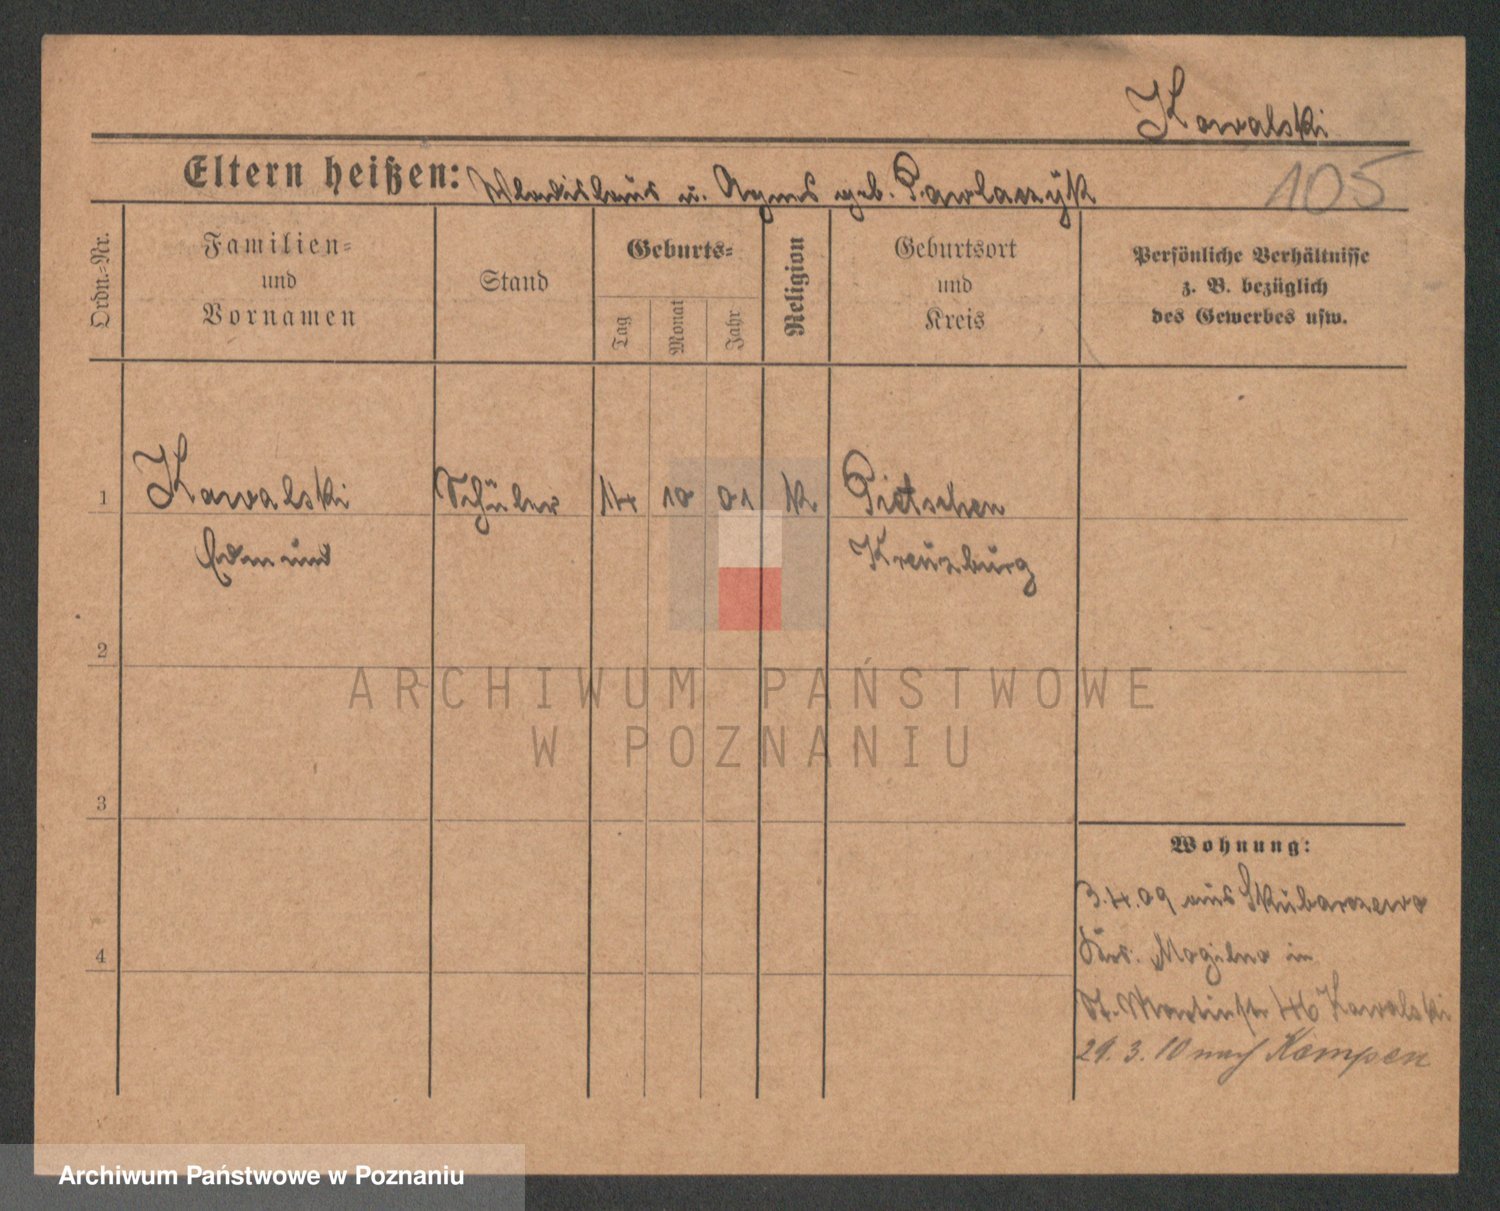 Kowalski
Eltern heißen: Wladislaus u. Agnes geb. Pawlaszyk
105
Ordn.-Nr.
Familien-
und
Vornamen
Stand
Geburts-
Tag
Monat
Jahr
Religion
Geburtsort
und
Kreis
Persönliche Verhältnisse
z. B. bezüglich
des Gewerbes usw.
1 Kawalski Schüler 14 10 01 k Pietschen
Edmund Kreuzburg
2
3
4
Wohnung:
3.4.09 aus Skubarzewo
Krs. Mogilno in
St. Martinstr 46 Kawalski
29. 3. 10 nach Kempen
ARCHIWUM PAŃSTWOWE
W POZNANIU
Archiwum Państwowe w Poznaniu